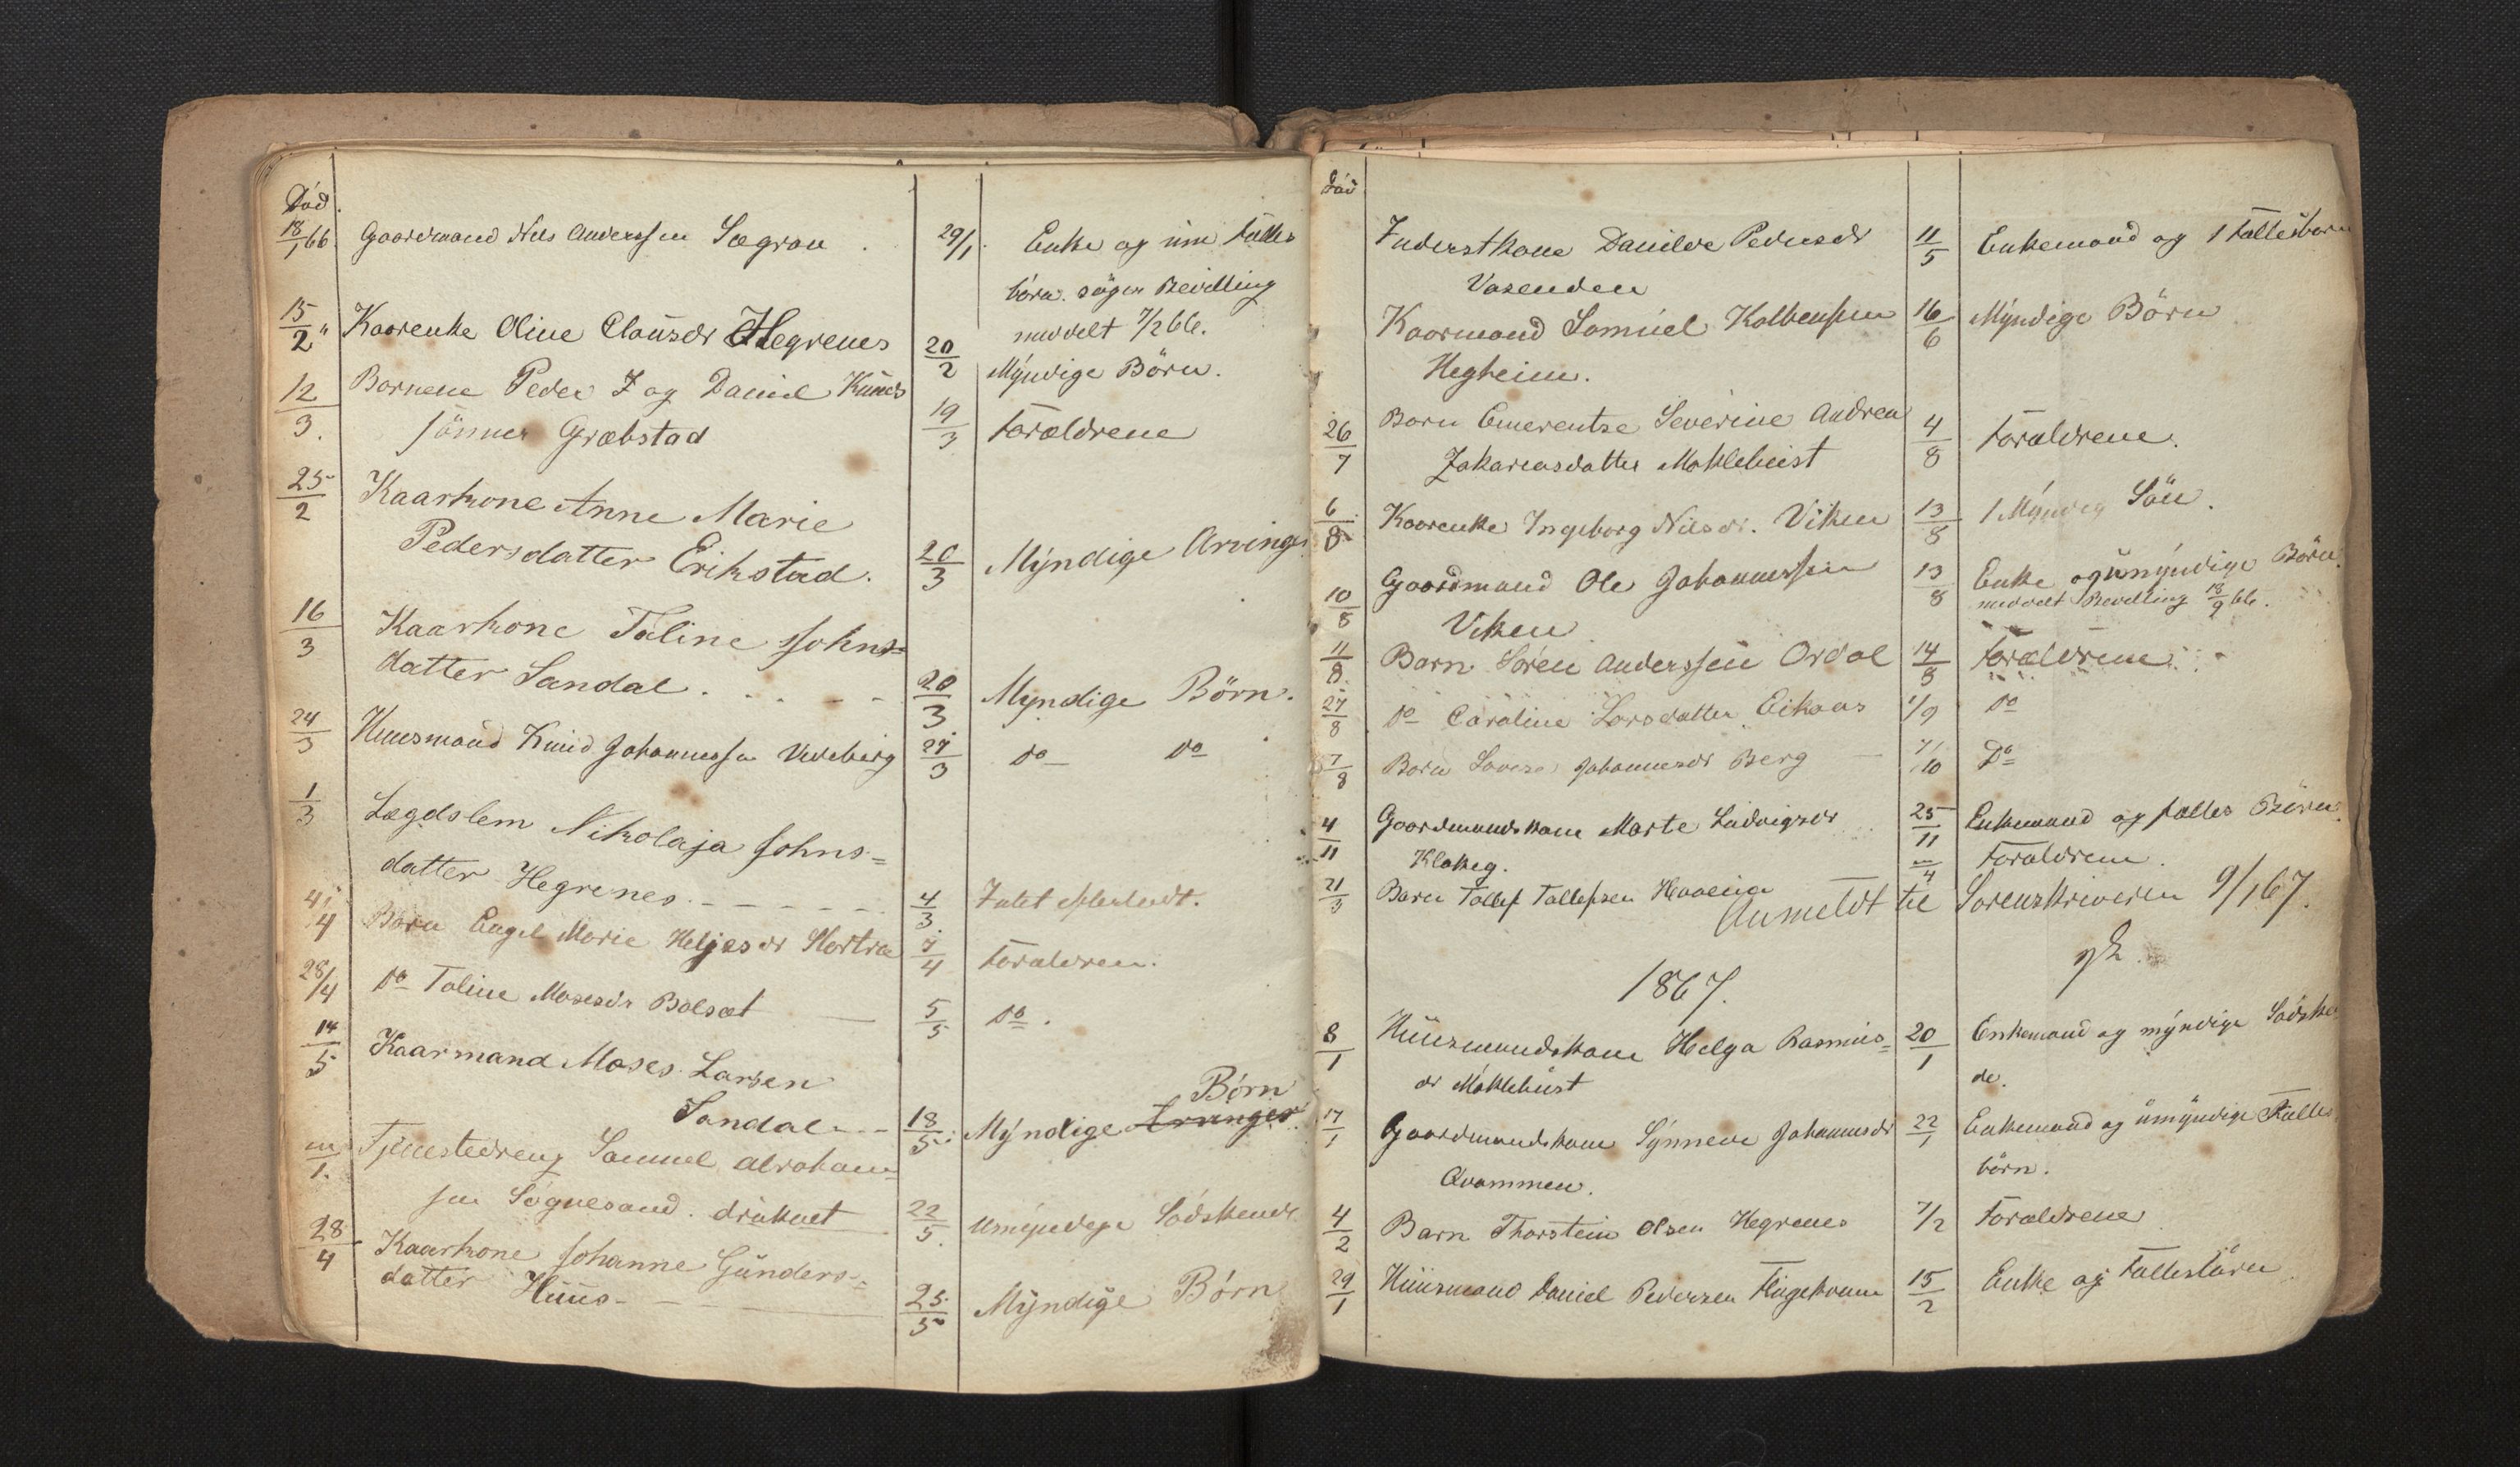 Död.
18/1 66. Gaardmand Nils Anderssen Sægrov . 29/1. Enke og um fælles
börn. söger Bevilling
meddelt 7/2 66.
15/2 " Kaarenke Oline Clausdr Hegrenes 20/2 Myndige Börn.
12/3. Bornene Peder J og Daniel Knuds
sönner Græbstad 19/3 Forældrene
25/2 Kaarkone Anne Marie
Pedersdatter Erikstad. 20/3 Myndige Arvinger
16/3 Kaarkone Taline Johns=
datter Sandal . . . - - 20/3 Myndige Börn.
24/3 Huusmand Knud Johannessen Vedeberg 27/3 do do
1/3 Lægdslem Nikolaja Johns=
datter Hegrenes. - - - - - - 4/3. Intet efterladt.
4/4 Barn Engel Marie Helgesdr Slortræ 7/4 Forældren.
28/4 do Taline Mosesdr Bolsæt 5/5 do.
14/5 Kaarmand Moses Larsen
Sandal - - 18/5. Myndige Arvinger Börn
m/1. Tjenestedreng Samuel Abraham=
sen Sögnesand. druknet 22/5. umyndige Södskende
28/4 Kaarkone Johanne Gunders=
datter Huus - - - 25/5 Myndige Börn
Död
Inderstkone Danilde Pedersdr 11/5 Enkemand og 1 Fællesbarn
Vasenden
Kaarmand Samuel Kolbensen 16/6 Myndige Börn
Hegheim.
26/7 Barn Emerentse Severine Andrea 4/8 Forældrene.
Zakariasdatter Moklebust
6/8 Kaarenke Ingeborg Nilsdr. Viken 13/8 1 Myndig Sön.
10/8 Gaardmand Ole Johannessen 13/8 Enke og umyndige Börn.
meddelt Bevilling 18/9 66.
Viken
11/8. Barn Sören Anderssen Ordal 14/8 Forældrene.
27/8 do Caroline Larsdatter Eikaas 1/9 do
7/8 Barn Lovise Johannesdr Berg 7/10 Do
4/11 Gaardmandskone Marte Ludvigsdr 25/11 Enkemand og fælles Börn.
Klakeg.
21/3 Barn Tollef Tollefsen m/4 Forældrene.
Anmeldt til Sorenskriveren 9/1 67.
1867.
8/1 Huusmandskone Helga Rasmus= 20/1 Enkemand og myndige Södsken
dr Moklebust de.
17/1 Gaardmandskone Synneve Johannesdr 22/1 Enkemand og umyndige Fælles
Qvammen. börn.
4/2 Barn Thorstein Olsen Hegrenes 7/2 Forældrene
29/1 Huusmand Daniel Pedersen 15/2 Enke og Fællesbörn